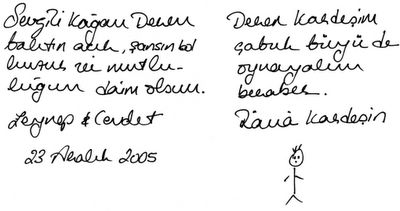 Sevgili Kağan Deren
bahtın açık, şansın bol
huzur ve mutlu-
luğun daim olsun.
Zeynep & Cevdet
23 Aralık 2005
Deren Kardeşim
çabuk büyü de
oynayalım
beraber.
Kardeşin